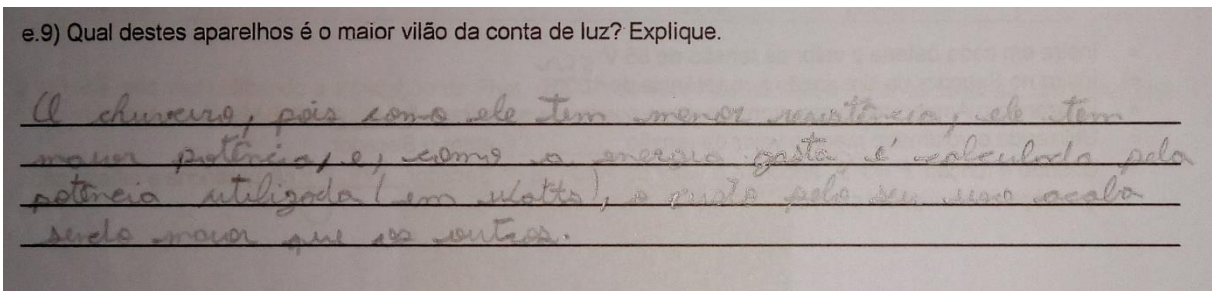 e.9) Qual destes aparelhos é o maior vilão da conta de luz? Explique.
O chuveiro, pois como ele tem menor resistência, ele tem
maior potência, e, como a energia gasta é calculada pela
potência utilizada (em watts), o gasto pelo seu uso acaba
sendo maior que os outros.